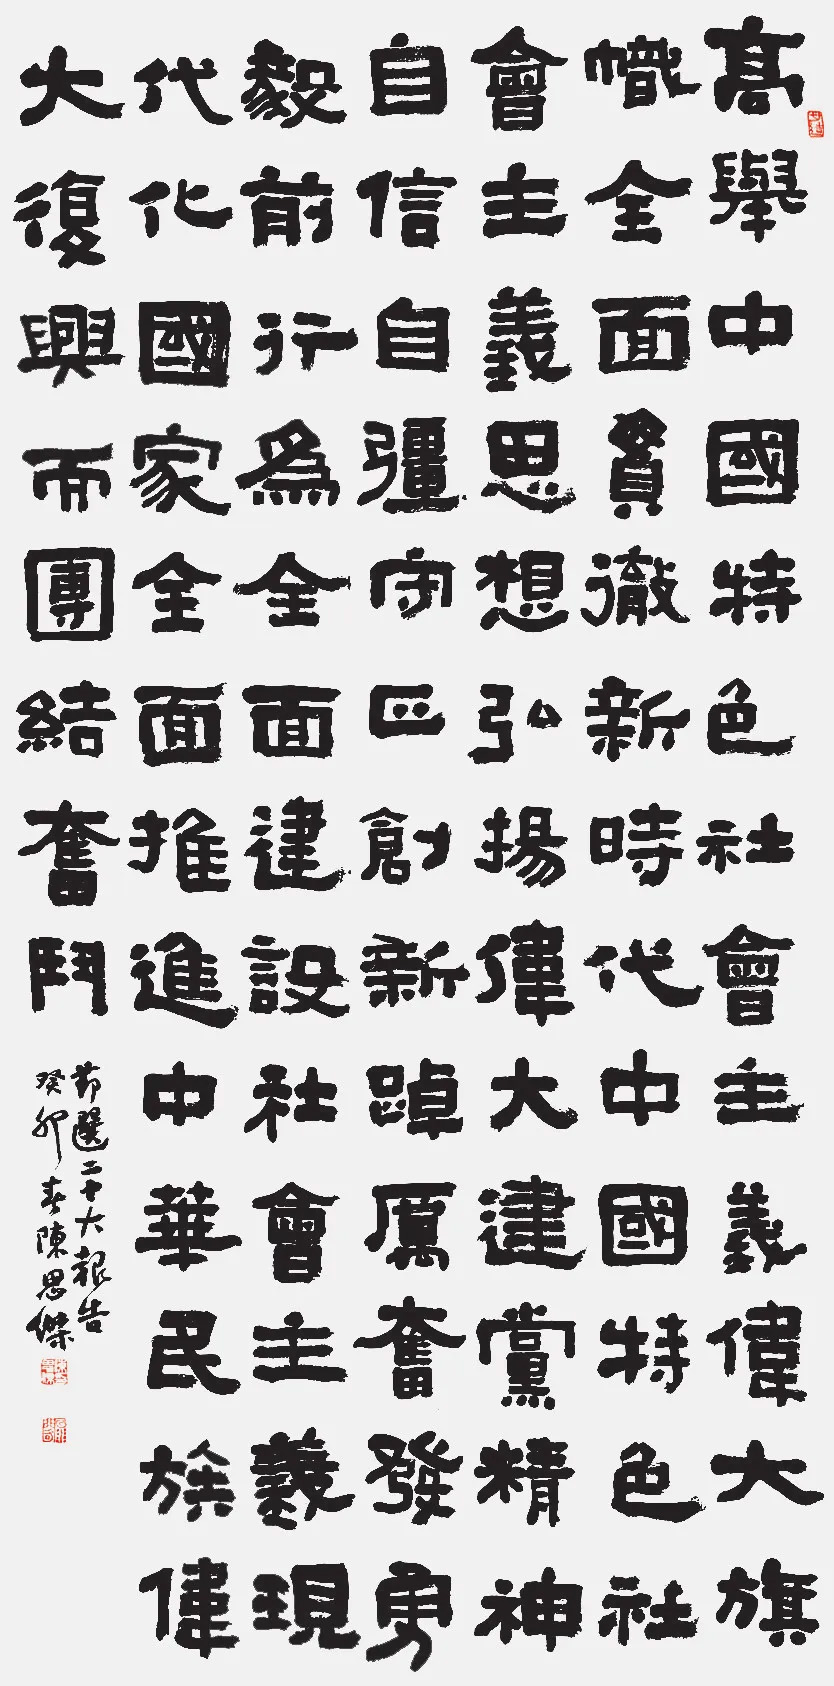 高舉中國特色社會主義偉大旗
幟全面貫徹新時代中國特色社
會主義思想弘揚偉大建黨精神
自信自彊守正創新踔厲奮發勇
毅前行為全面建設社會主義現
代化國家全面推進中華民族偉
大復興而團結奮鬥
節選二十大報告
癸卯春陳思傑